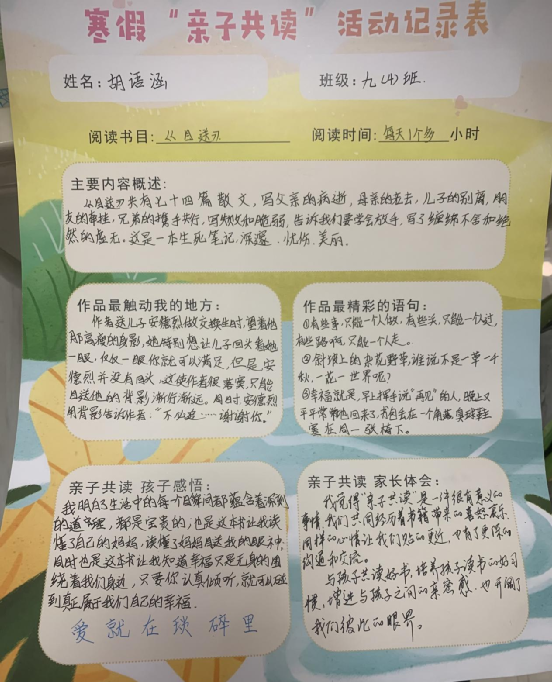 寒假“亲子共读”活动记录表
姓名：胡语涵
班级：九(4)班.
阅读书目：《目送》
阅读时间：每天1个多小时
主要内容概述：
《目送》共有七十四篇散文，写父亲的病逝，母亲的老去，儿子的别离，朋
友的牵挂，兄弟的携手共行，写失败和脆弱，告诉我们要学会放手，写了缠绵不舍和绝
然的虚无。这是一本生死笔记，深邃，忧伤，美丽.
作品最触动我的地方：
作者送儿子安德烈做交换生时，望着他
那高瘦的身影，她特别想让儿子回头看她
一眼，仅仅一眼你就可以满足，但是安
德烈并没有回头，这使作者很落寞，只能
目送他的背影渐行渐远。同时安德烈
用背影告诉作者：“不必追……谢谢你。”
作品最精彩的语句：
①有些事，只能一个人做，有些关，只能一个人过，
有些路啊，只能一个人走。
②斜坡上的杂花野草，谁说不是一草一千
秋，一花一世界呢？
③幸福就是，早上挥手说“再见”的人，晚上又
平平常常地回来了，书包丢在一个角落，臭球鞋
塞在同一张椅下。
亲子共读 孩子感悟：
我明白了生活中的每个瞬间都蕴含着深刻
的道理，都是宝贵的，也是这本书让我读
懂了自己的妈妈，读懂了妈妈目送我的眼神.
同时也是这本书让我知道幸福只是无声的围
绕着我们身边，只要你认真倾听，就可以感
到真正属于我们自己的幸福.
爱就在琐碎里
亲子共读 家长体会：
我觉得“亲子共读”是一件很有意义的
事情，我们共同经历着书籍带来的喜怒哀乐.
同样的心情让我们贴的更近，也有了更深的
沟通和交流。
与孩子共读好书，培养孩子读书的好习
惯，增进与孩子之间的亲密感，也开阔了
我们彼此的眼界。